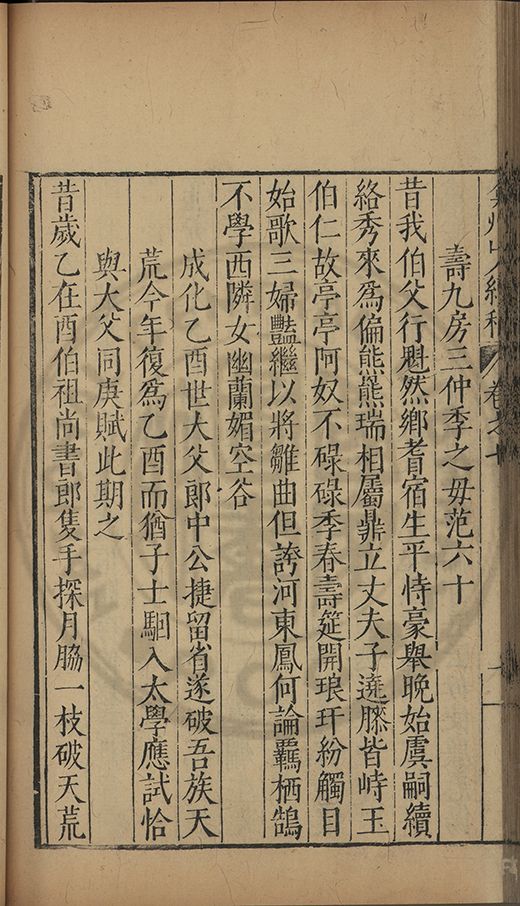 壽九房三仲季之毋范六十
昔我伯父行魁然鄉耆宿生平恃豪舉晚始虞嗣續
絡秀來爲偏熊羆瑞相屬鼎立丈夫子遶膝皆峙玉
伯仁故亭亭阿奴不碌碌季春壽筵開琅玕紛觸目
始歌三婦豔繼以將雛曲但誇河東鳳何論羇栖鵠
不學西隣女幽蘭媚空谷
成化乙酉世大父郎中公捷留省遂破吾族天
荒今年復爲乙酉而猶子士駰入太學應試恰
與大父同庚賦此期之
昔歲乙在酉伯祖尚書郎隻手探月脇一枝破天荒